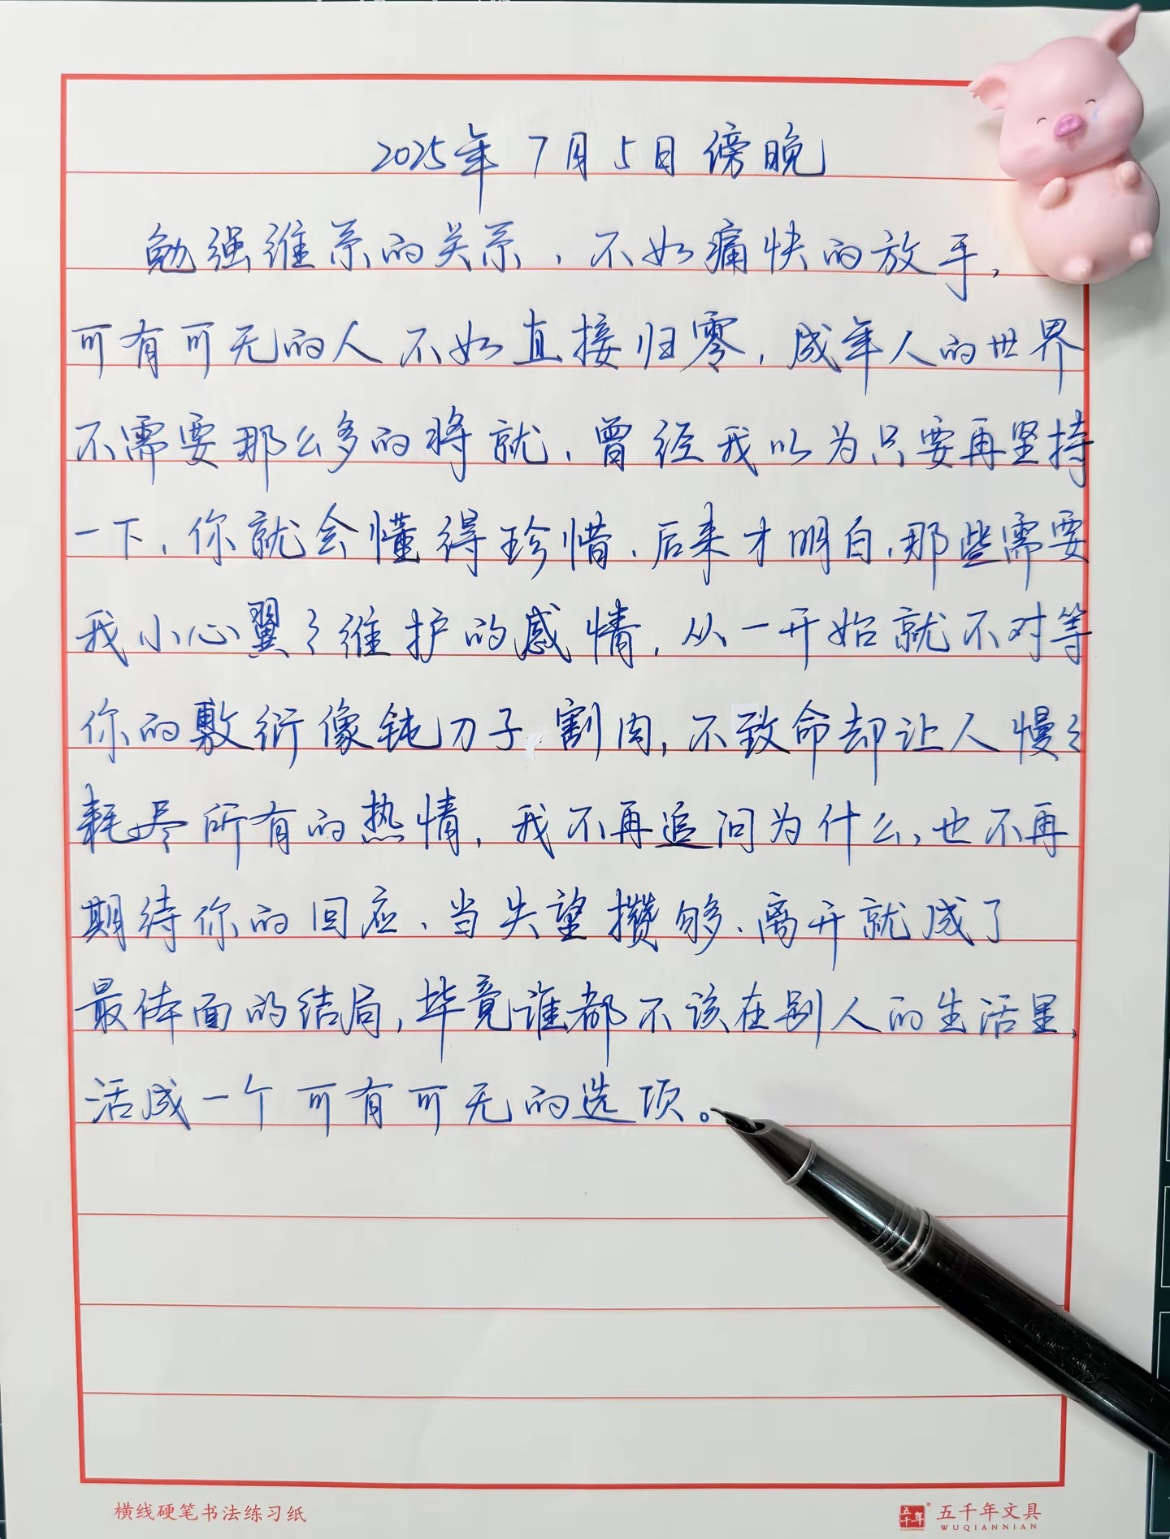 2025年7月5日傍晚
勉强维系的关系，不如痛快的放手，
可有可无的人不如直接归零，成年人的世界
不需要那么多的将就，曾经我以为只要再坚持
一下，你就会懂得珍惜，后来才明白，那些需要
我小心翼々维护的感情，从一开始就不对等
你的敷衍像钝刀子割肉，不致命却让人慢々
耗尽所有的热情，我不再追问为什么，也不再
期待你的回应、当失望攒够、离开就成了
最体面的结局，毕竟谁都不该在别人的生活里，
活成一个可有可无的选项。
横线硬笔书法练习纸
五千年 五千年文具
WUQIANNIAN